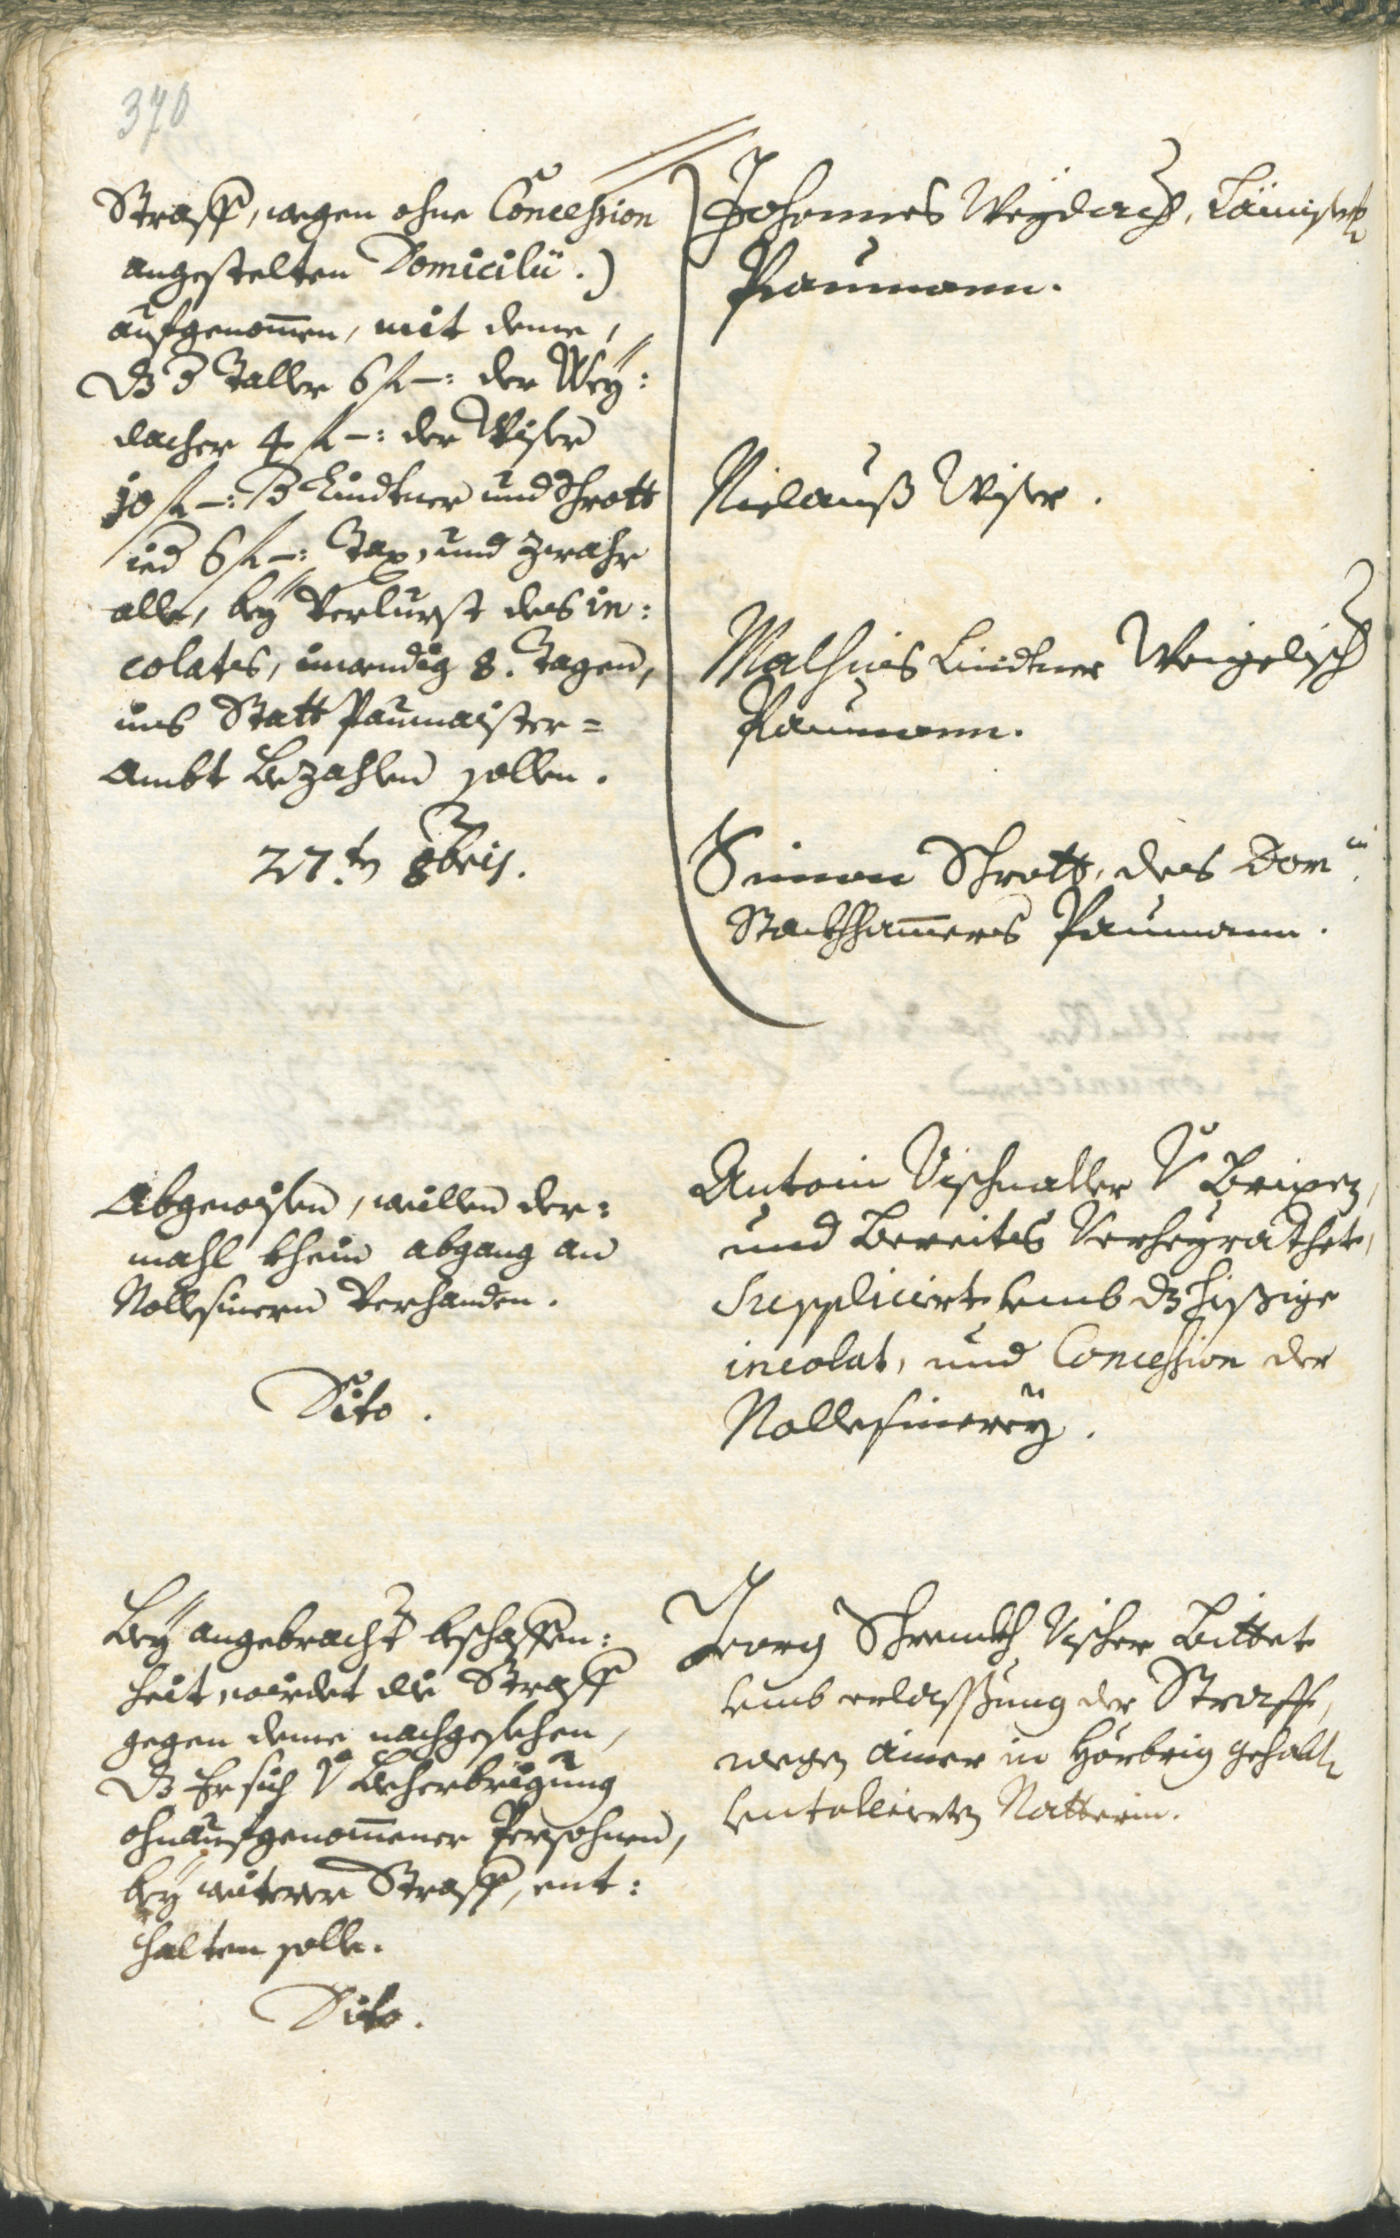 370
Straff, wegen ohne Concession
angestelten Domicilii.)
aufgenommen, mit deme,
dz d Taller 6 fl –: der Wey:
dacher 4 fl –: der Wiser
10 fl –: d Lindtner und Schrott
ied 6 fl –: Tax, und zwahr
alle, bey Verlurst des in:
colates, inwendig 8. Tagen,
ins Statt Paumaister=
Ambt bezahlen sollen.
27.ten 8bris.
Johannes Weydach,
Paumann.
Niclauß Wiser.
Mathias Lindtner Weigelisch
Paumann.
Simon Schrott, des Dom:
Paumann.
Abgewisen, weillen der:
mahl khein abgang an
Nollesinern Verhanden.
Dito.
Antoni Vischnaller v Brixen,
und bereites Verheyrathet,
Supplicirt umb dz hießige
incolat, und Concession der
Nollesinerey.
Bey angebracht beschaffen:
heit, wirdet die Straff
gegen deme nachgesehen,
dz Er sich v Beherbrigung
ohnaufgenommener Persohnen,
bey weiterer Straff, ent:
halten solle.
Dito.
Georg Vischer Bittet
umb erlassßung der Straff,
wegen ainer in Hörbrig gehalt
Natterin.